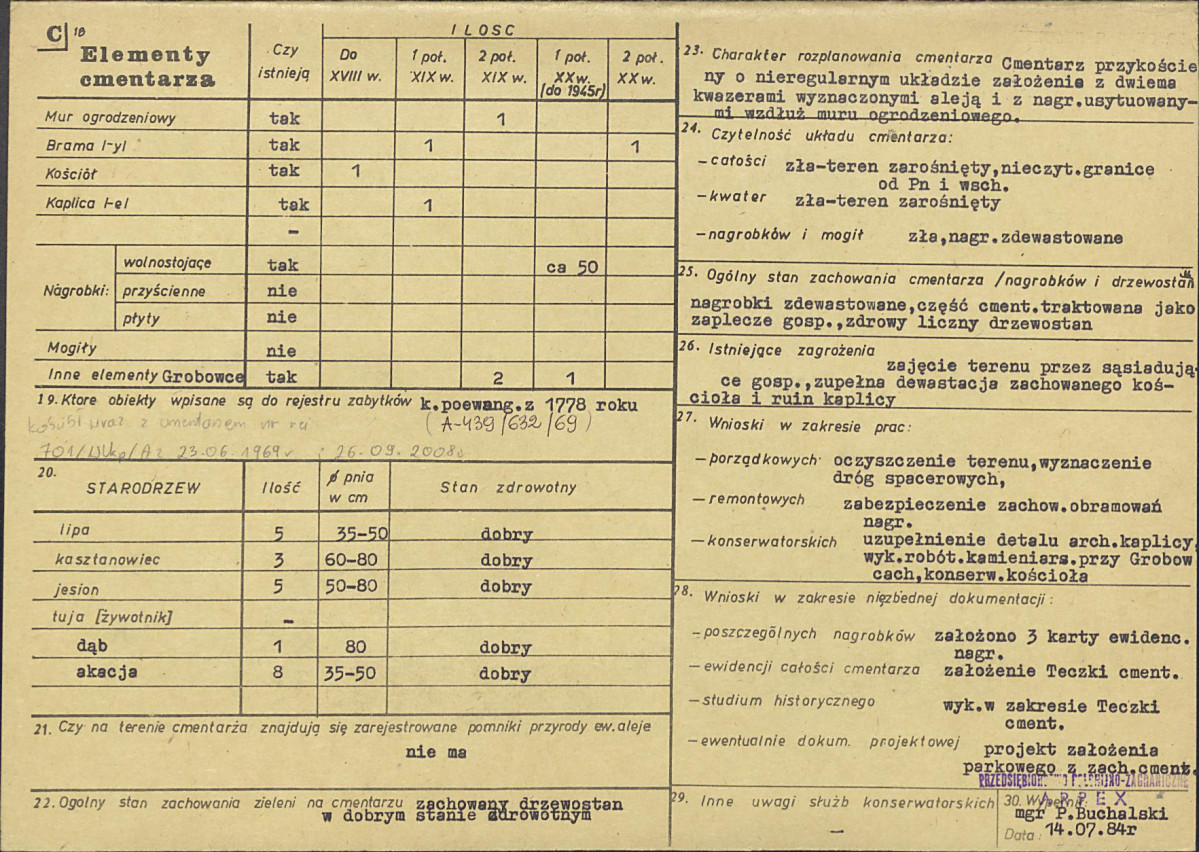 C 18
Elementy
cmentarza
Czy
istnieją
ILOSC
Do
XVIII w.
1 poł.
XIX w.
2 poł.
XIX w.
1 poł.
XX w.
(do 1945r)
2 poł.
XX w.
Mur ogrodzeniowy tak 1
Brama l-yl tak 1 1
Kościół tak 1
Kaplica l-el tak 1
–
Nagrobki:
wolnostojące tak ca 50
przyścienne nie
płyty nie
Mogiły nie
Inne elementy Grobowce tak 2 1
19. Ktore obiekty wpisane są do rejestru zabytków k.poewang.z 1778 roku
kościół wraz z cmentarzem nr rej (A-439/632/69)
701/Wkp/A z 23.06.1969 r i 26.09.2008r
20.
STARODRZEW
Ilość
ø pnia
w cm
Stan zdrowotny
lipa 5 35-50 dobry
kasztanowiec 3 60-80 dobry
jesion 5 50-80 dobry
tuja [żywotnik] –
dąb 1 80 dobry
akacja 8 35-50 dobry
21. Czy na terenie cmentarza znajdują się zarejestrowane pomniki przyrody ew. aleje
nie ma
22. Ogolny stan zachowania zieleni na cmentarzu zachowany drzewostan
w dobrym stanie zdrowotnym
23. Charakter rozplanowania cmentarza Cmentarz przykoście
ny o nieregularnym układzie założenia z dwiema
kwazerami wyznaczonymi aleją i z nagr.usytuowany-
mi wzdłuż muru ogrodzeniowego.
24. Czytelność układu cmentarza:
– całości zła-teren zarośnięty,nieczyt.granice
od Pn i wsch.
– kwater zła-teren zarośnięty
– nagrobków i mogił zła,nagr.zdewastowane
25. Ogólny stan zachowania cmentarza /nagrobków i drzewostan
nagrobki zdewastowane,część cment.traktowana jako
zaplecze gosp.,zdrowy liczny drzewostan
26. Istniejące zagrożenia
zajęcie terenu przez sąsiadują-
ce gosp.,zupełna dewastacja zachowanego koś-
cioła i ruin kaplicy
27. Wnioski w zakresie prac:
– porządkowych oczyszczenie terenu,wyznaczenie
dróg spacerowych,
– remontowych zabezpieczenie zachow.obramowań
nagr.
– konserwatorskich uzupełnienie detalu arch.kaplicy,
wyk.robót.kamieniars.przy Grobow
cach,konserw.kościoła
28. Wnioski w zakresie niezbednej dokumentacji:
– poszczególnych nagrobków założono 3 karty ewidenc.
nagr.
– ewidencji całości cmentarza założenie Teczki cment.
– studium historycznego wyk.w zakresie Teczki
cment.
– ewentualnie dokum. projektowej projekt założenia
parkowego z zach.cment.
29. Inne uwagi służb konserwatorskich
–
ARPEX
30. Wypełnił:
mgr P.Buchalski
Data: 14.07.84r